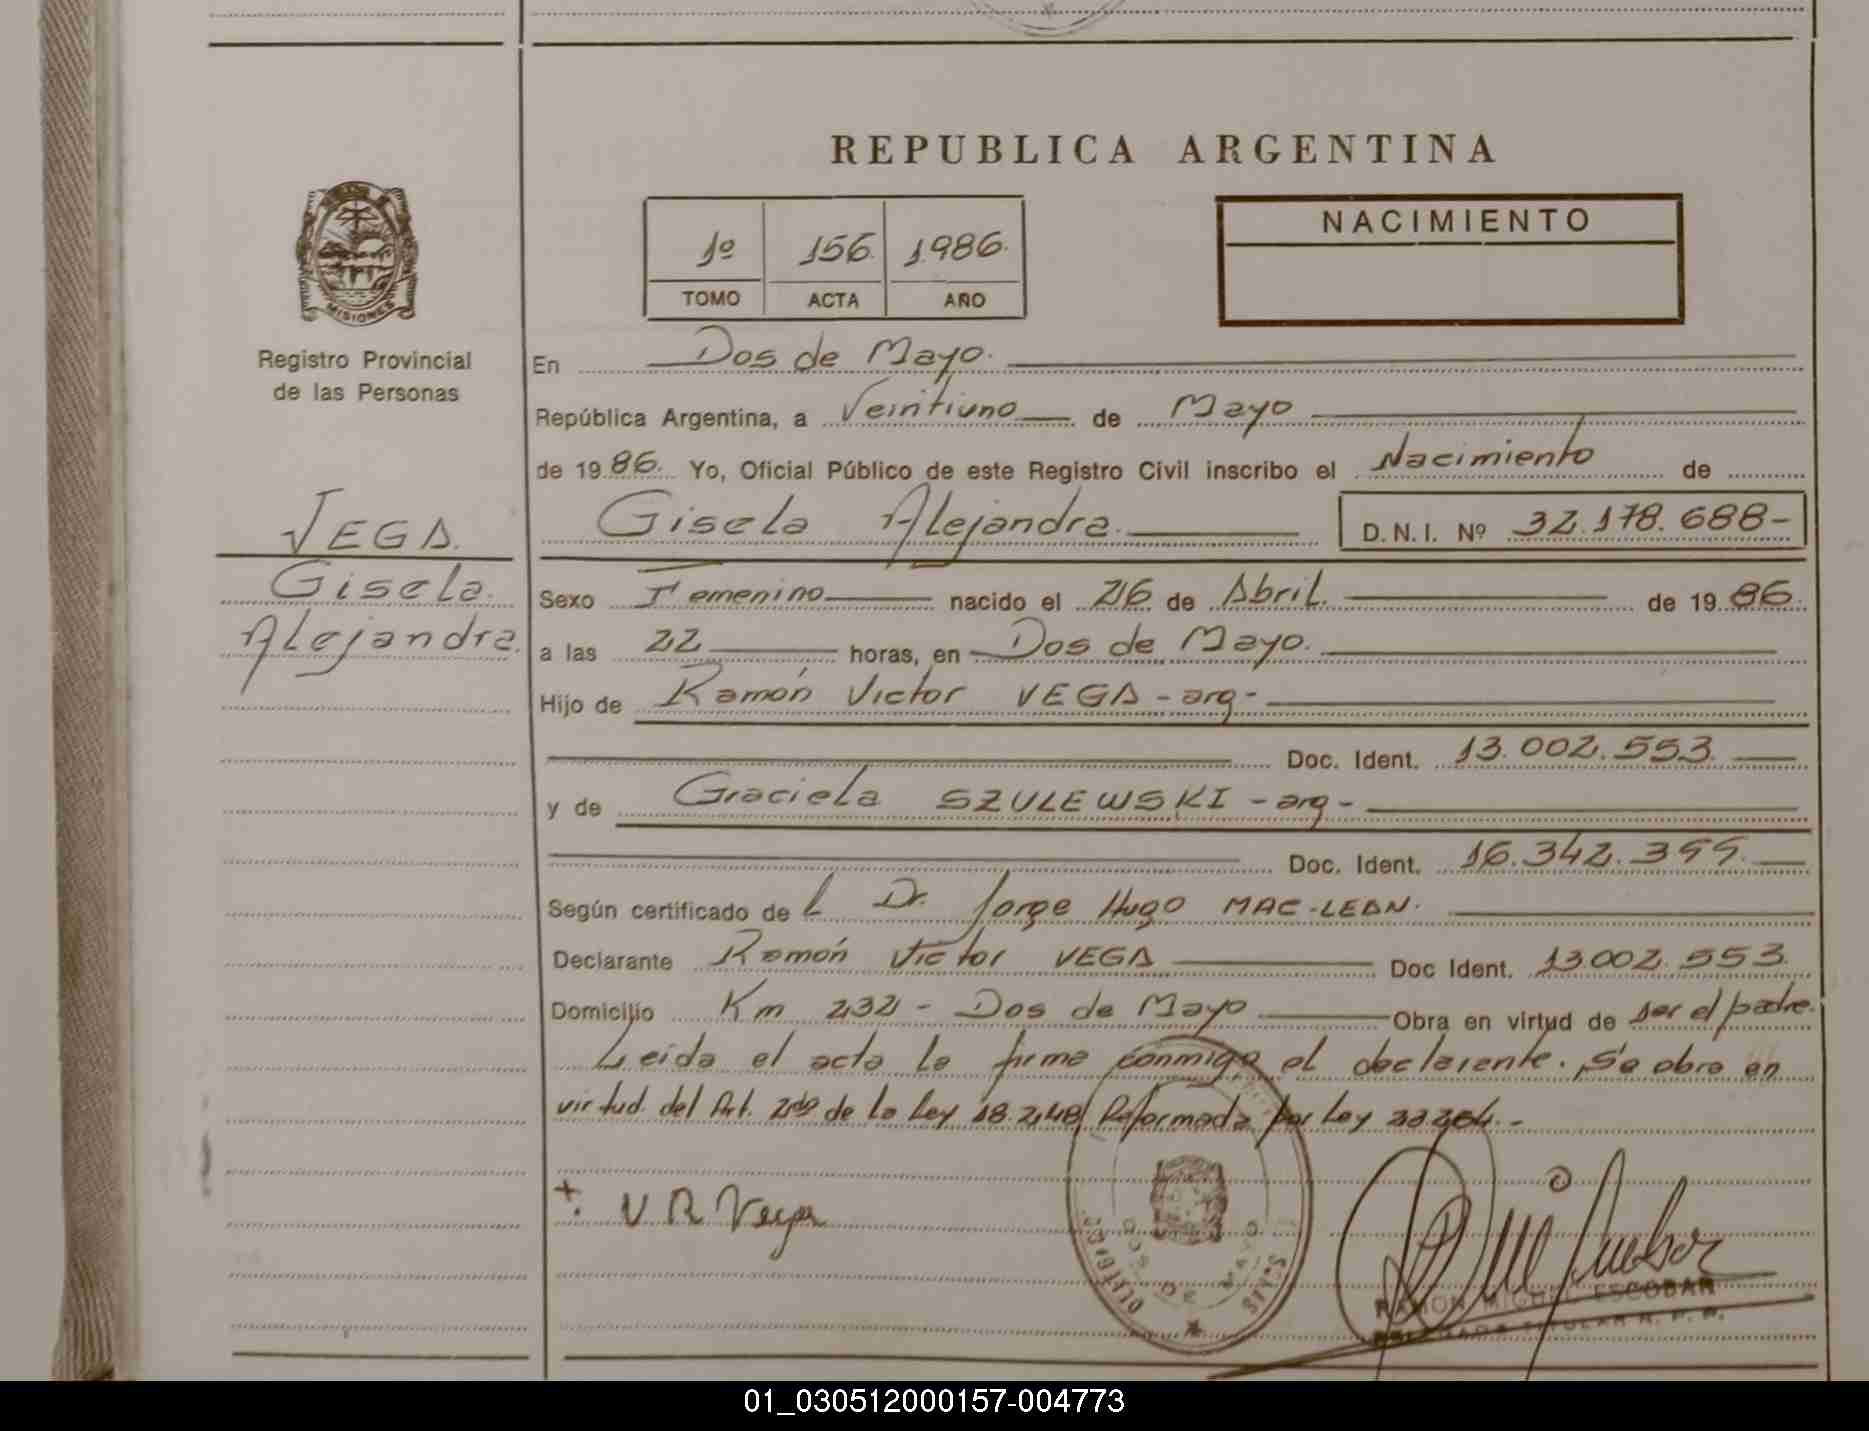 REPUBLICA ARGENTINA
1º 156 1986.
TOMO ACTA AÑO
NACIMIENTO
MISIONES
Registro Provincial
de las Personas
VEGA.
Gisela
Alejandra.
En Dos de Mayo.
República Argentina, a Veintiuno de Mayo
de 19 86. Yo, Oficial Público de este Registro Civil inscribo el Nacimiento de
Gisela Alejandra. D.N.I. Nº 32.178.688-
Sexo Femenino nacido el 26 de Abril. de 19 86.
a las 22 horas, en Dos de Mayo.
Hijo de Ramón Victor VEGA - arg -
Doc. Ident. 13.002.553.
y de Graciela SZULEWSKI - arg -
Doc. Ident. 16.342.399.
Según certificado de l Dr. Jorge Hugo MAC-LEAN.
Declarante Ramón Victor VEGA Doc Ident. 13.002.553.
Domicilio Km 232 - Dos de Mayo Obra en virtud de ser el padre.
Leida el acta la firma conmigo el declarante. Se obra en
virtud del Art. 2do de la Ley 18.248 Reformada por Ley
+. V R Vega
DOS DE MAYO
RAMON MIGUEL ESCOBAR
TITULAR R. P. P.
01_030512000157-004773